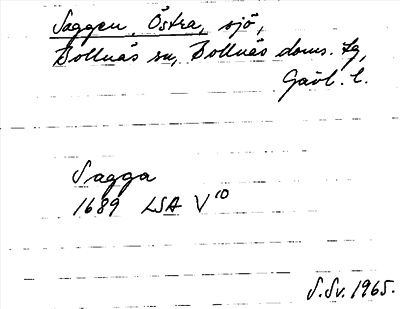 Saggen, Östra, sjö,
Bollnäs sn, Bollnäs doms. tg,
Gävl. l.
Sagga
1689 LSA V¹⁰
S.Sv. 1965.